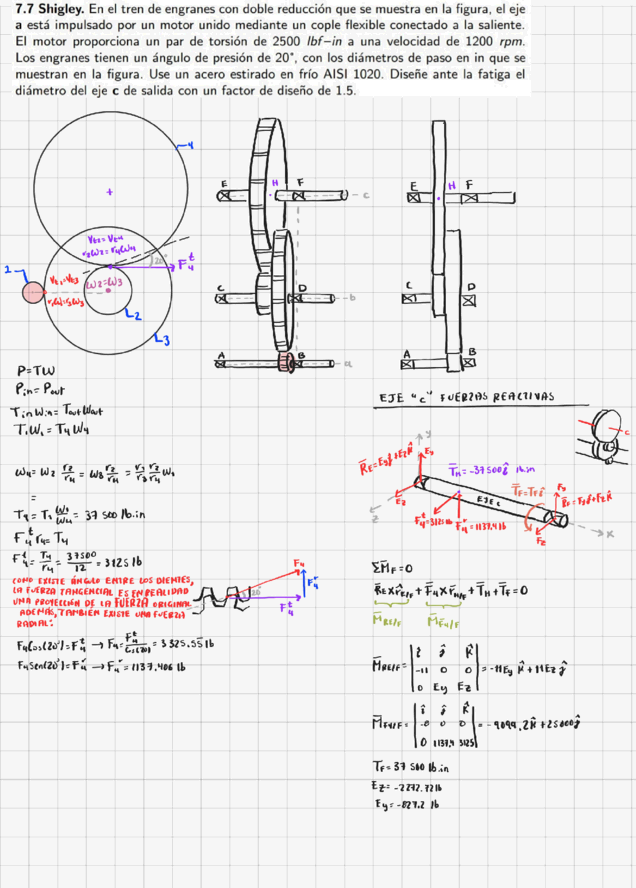 7.7 Shigley. En el tren de engranes con doble reducción que se muestra en la figura, el eje
a está impulsado por un motor unido mediante un cople flexible conectado a la saliente.
El motor proporciona un par de torsión de 2500 lbf−in a una velocidad de 1200 rpm.
Los engranes tienen un ángulo de presión de 20°, con los diámetros de paso en in que se
muestran en la figura. Use un acero estirado en frío AISI 1020. Diseñe ante la fatiga el
diámetro del eje c de salida con un factor de diseño de 1.5.
4
E H F
c
E H F
20°
F₄ᵗ
1
ω2=ω3
C D
b
C D
2
3
A B
a
A B
P=Tω
Pin = Pout
Tin Win = Tout Wout
T₁W₁ = T₄W₄
=
T₄ = T₁ W₁/W₄ = 37 500 lb.in
F₄ᵗ r₄ = T₄
F₄ᵗ = T₄/r₄ = 37500/12 = 3125 lb
COMO EXISTE ÁNGULO ENTRE LOS DIENTES,
LA FUERZA TANGENCIAL ES EN REALIDAD
UNA PROYECCIÓN DE LA FUERZA ORIGINAL
ADEMÁS, TAMBIÉN EXISTE UNA FUERZA
RADIAL:
F₄
F₄ʳ
20°
F₄ᵗ
F₄Cos(20°)=F₄ᵗ → F₄= F₄ᵗ/Cos(20) = 3 325.55 lb
F₄Sen(20°)=F₄ʳ → F₄ʳ = 1137.406 lb
EJE "c" FUERZAS REACTIVAS
c
y
Ey
T̄H = -37 500 î lb.in
Ez
z
EJE c
T̄F=TF î
Fy
F₄ᵗ=3125 lb
F₄ʳ=1137.4 lb
Fz
x
ΣM̄F=0
R̄E x r̄E/F + F̄₄ x r̄H/F + T̄H + T̄F = 0
M̄RE/F
M̄F4/F
M̄RE/F = | î ĵ k̂ |
| -11 0 0 | = -11Ey k̂ + 11Ez ĵ
| 0 Ey Ez |
M̄F4/F = | î ĵ k̂ |
| -8 0 0 | = -9099.2k̂ + 25000ĵ
| 0 1137.4 3125 |
TF = 37 500 lb.in
Ez = -2272.72 lb
Ey = -827.2 lb